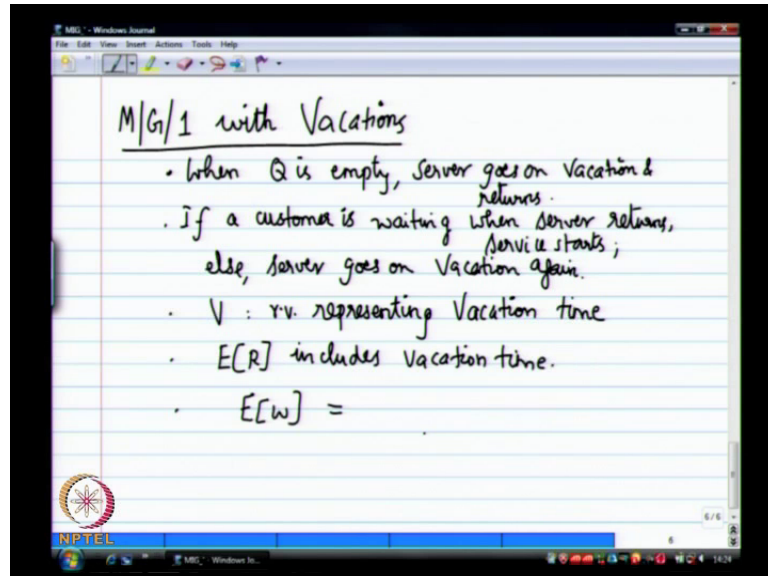 MIG_' - Windows Journal
File Edit View Insert Actions Tools Help
M/G/1 with Vacations
· When Q is empty, Server goes on Vacation &
returns.
· If a customer is waiting when server returns,
service starts;
else, server goes on Vacation again.
· V : r.v. representing Vacation time
· E[R] includes vacation time.
· E[W] =
6/6
6
NPTEL
MIG_' - Windows Jo...
14:24